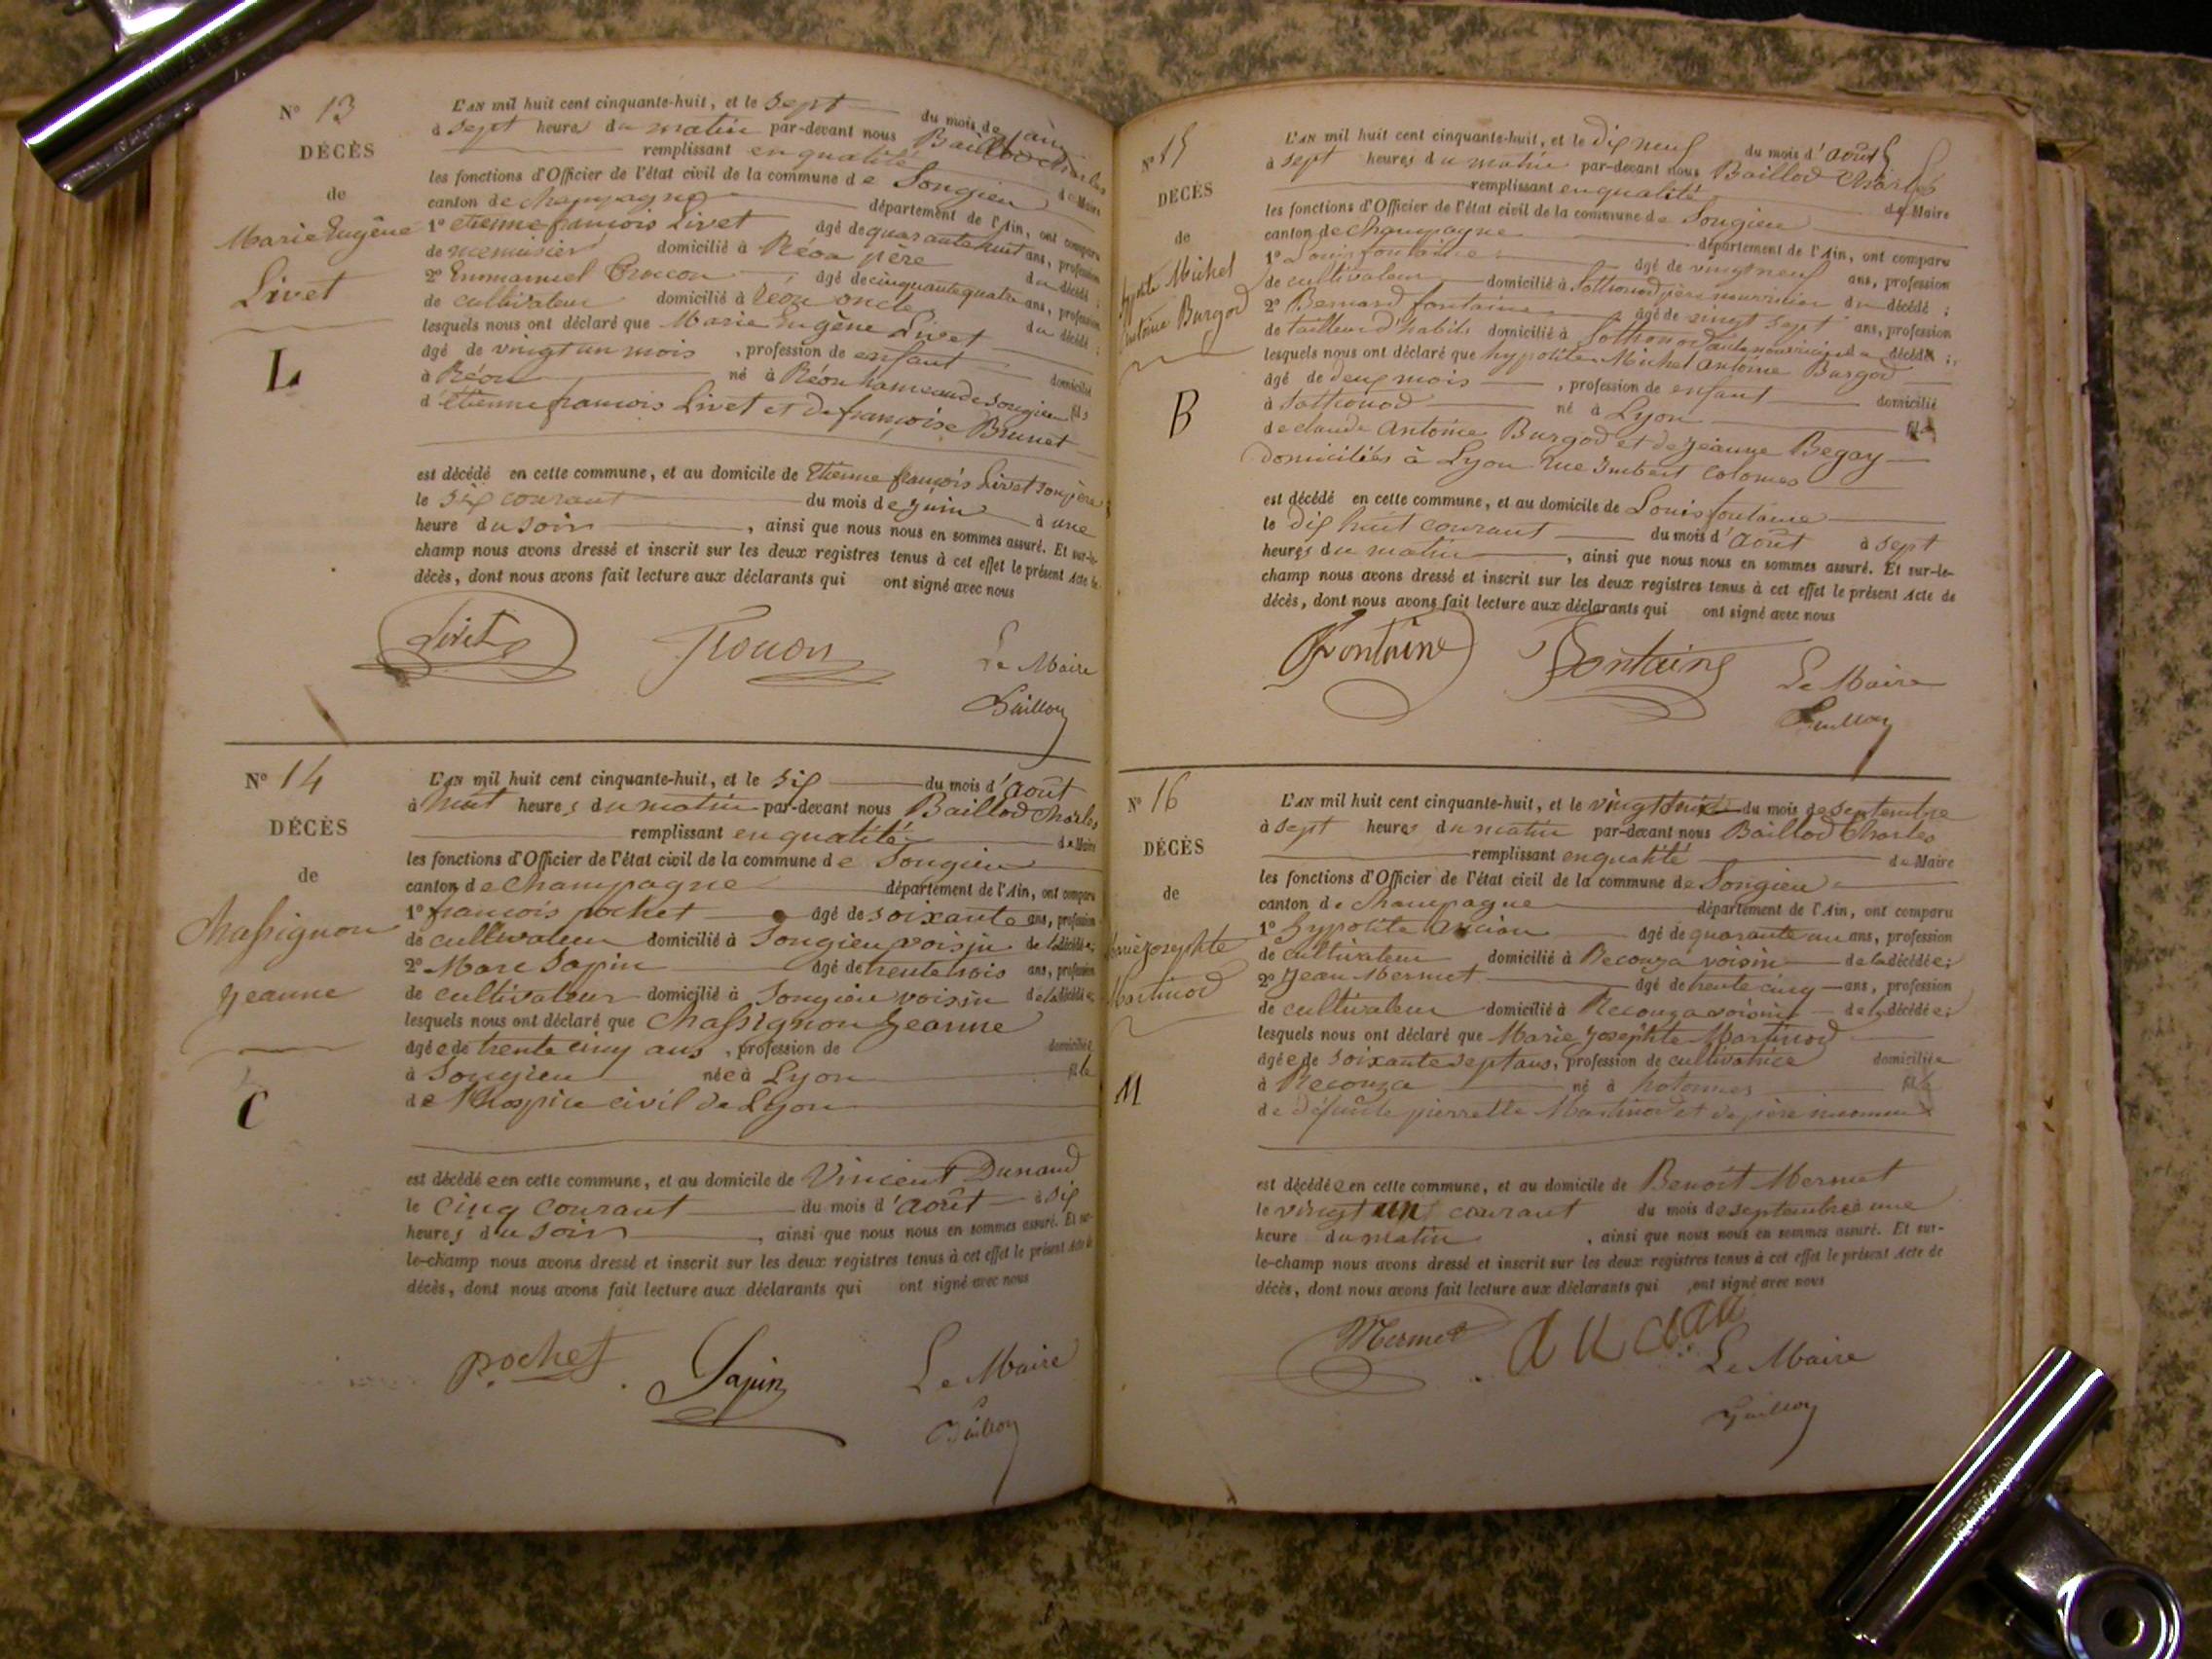 N° 13
DÉCÈS
de
Marie Eugène
Livet
L
L'AN mil huit cent cinquante-huit, et le sept du mois de juin
à sept heures du matin par-devant nous Baillod Charles
remplissant en qualité de Maire
les fonctions d'Officier de l'état civil de la commune de Songieu
canton de champagne département de l'Ain, ont comparu
1° etienne françois Livet âgé de quarante huit ans, profession
de menuisier domicilié à Réon père du décédé ;
2° Emmanuel âgé de cinquante quatre ans, profession
de cultivateur domicilié à réon oncle du décédé ;
lesquels nous ont déclaré que Marie Eugène Livet
âgé de vingt un mois , profession de enfant domicilié
à Réon né à Réon hameau de songieu fils
d'étienne françois Livet et de françoise Brunet
est décédé en cette commune, et au domicile de Etienne françois Livet son père
le six courant du mois de juin à une
heure du soir , ainsi que nous nous en sommes assuré. Et sur-le-
champ nous avons dressé et inscrit sur les deux registres tenus à cet effet le présent Acte de
décès, dont nous avons fait lecture aux déclarants qui ont signé avec nous
Livet
Le Maire
Baillod
N° 14
DÉCÈS
de
Chassignon
Jeanne
C
L'AN mil huit cent cinquante-huit, et le six du mois d'août
à huit heures du matin par-devant nous Baillod Charles
remplissant en qualité de Maire
les fonctions d'Officier de l'état civil de la commune de Songieu
canton de Champagne département de l'Ain, ont comparu
1° françois pochet âgé de soixante ans, profession
de cultivateur domicilié à Songieu voisin de la décédée ;
2° Marc Sapin âgé de trente trois ans, profession
de cultivateur domicilié à Songieu voisin de la décédée ;
lesquels nous ont déclaré que Chassignon Jeanne
âgée de trente cinq ans , profession de domiciliée
à Songieu née à Lyon fille
de l'hospice civil de Lyon
est décédée en cette commune, et au domicile de Vincent Dunand
le Cinq courant du mois d'août à six
heures du soir , ainsi que nous nous en sommes assuré. Et sur-
le-champ nous avons dressé et inscrit sur les deux registres tenus à cet effet le présent Acte de
décès, dont nous avons fait lecture aux déclarants qui ont signé avec nous
pochet Sapin Le Maire
Baillod
N° 15
DÉCÈS
de
Michel
Antoine Burgod
B
L'AN mil huit cent cinquante-huit, et le dix neuf du mois d'août
à sept heures du matin par-devant nous Baillod Charles
remplissant en qualité de Maire
les fonctions d'Officier de l'état civil de la commune de Songieu
canton de Champagne département de l'Ain, ont comparu
1° Louis fontaine âgé de vingt neuf ans, profession
de cultivateur domicilié à Sothonod père nourricier du décédé ;
2° Bernard fontaine âgé de vingt sept ans, profession
de tailleur d'habits domicilié à Sothonod décédé ;
lesquels nous ont déclaré que hypolite Michel Antoine Burgod
âgé de deux mois , profession de enfant domicilié
à Sothonod né à Lyon fils
de claude Antoine Burgod et de Jeanne Begay
domiciliés à Lyon rue Imbert Colomes
est décédé en cette commune, et au domicile de Louis fontaine
le dix huit courant du mois d'août à sept
heures du matin , ainsi que nous nous en sommes assuré. Et sur-le-
champ nous avons dressé et inscrit sur les deux registres tenus à cet effet le présent Acte de
décès, dont nous avons fait lecture aux déclarants qui ont signé avec nous
Fontaine Fontaine Le Maire
Baillod
N° 16
DÉCÈS
de
Marie Josephte
Martinod
M
L'AN mil huit cent cinquante-huit, et le vingt du mois de septembre
à sept heures du matin par-devant nous Baillod Charles
remplissant en qualité de Maire
les fonctions d'Officier de l'état civil de la commune de Songieu
canton de Champagne département de l'Ain, ont comparu
1° hypolite Ancian âgé de quarante un ans, profession
de cultivateur domicilié à Reconza voisin de la décédée ;
2° Jean Mermet âgé de trente cinq ans, profession
de cultivateur domicilié à Reconza voisin de la décédée ;
lesquels nous ont déclaré que Marie Josephte Martinod
âgée de soixante sept ans, profession de cultivatrice domiciliée
à Reconza né à hotonnes fille
de défunte pierrette Martinod et de père inconnu
est décédée en cette commune, et au domicile de Benoit Mermet
le vingt un courant du mois de septembre à une
heure du matin , ainsi que nous nous en sommes assuré. Et sur-
le-champ nous avons dressé et inscrit sur les deux registres tenus à cet effet le présent Acte de
décès, dont nous avons fait lecture aux déclarants qui ont signé avec nous
Mermet ancian
Le Maire
Baillod